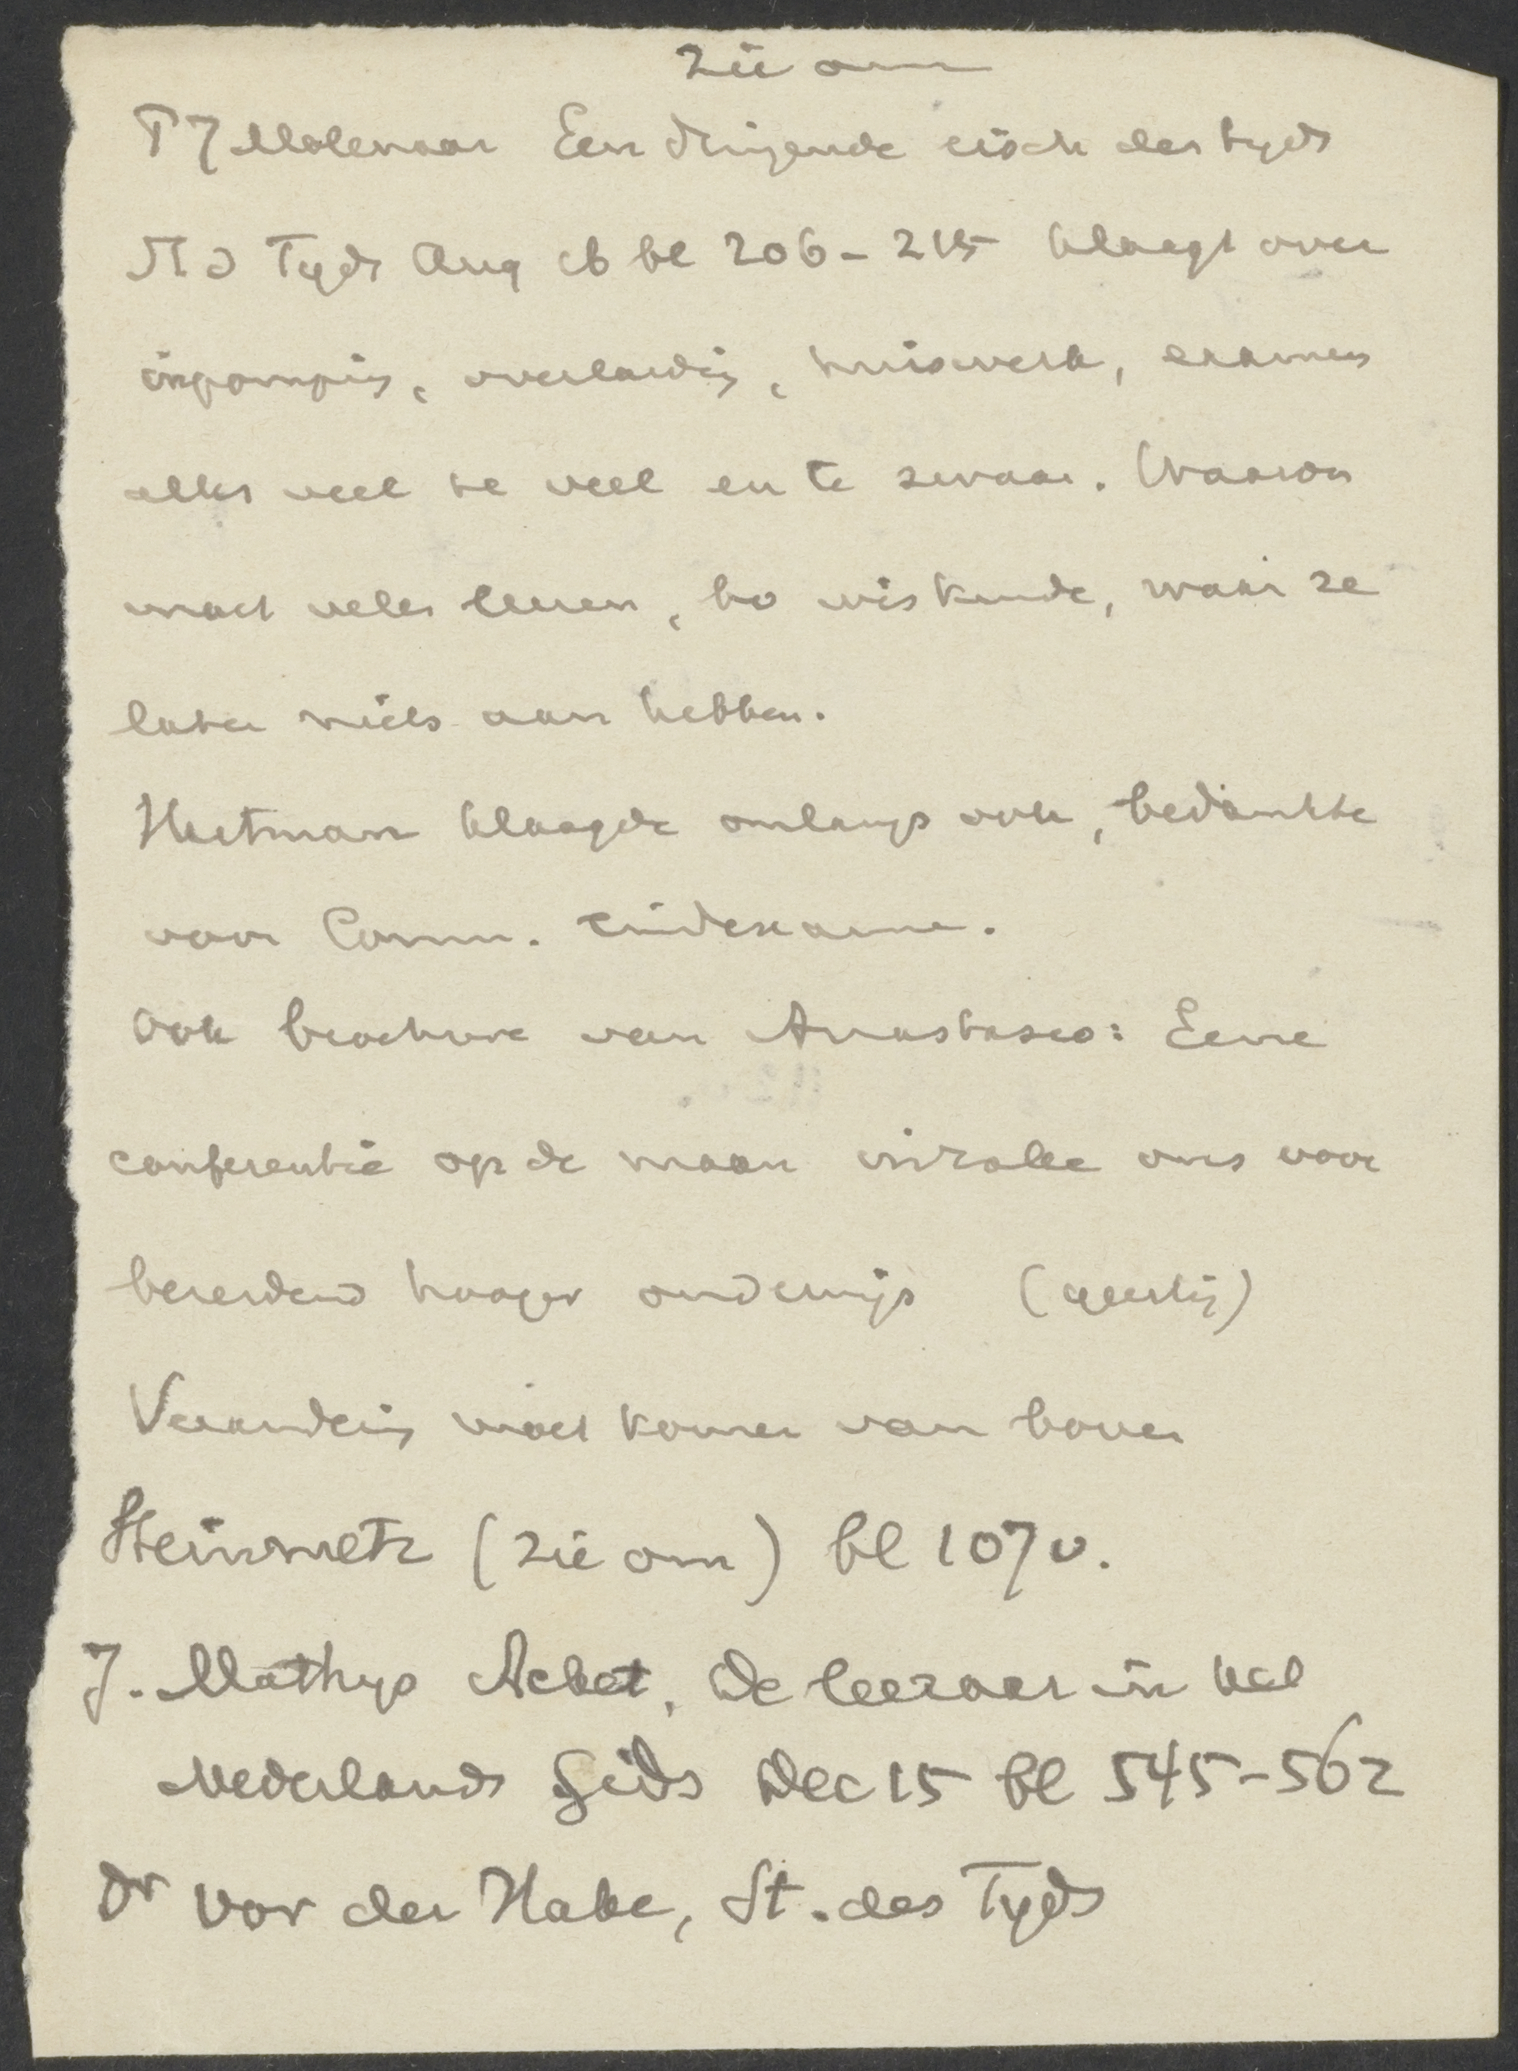 zie om
P J Molenaar Een dringende eisch des tyds
Tyds Aug bl 206-215 klaagt over
inpomping, overlading, huiswerk, examens
alles veel te veel en te zwaar. Waarom
moet velen leeren, bv wiskunde, waar ze
later niets aan hebben.
klaagde onlangs ook, bedankte
voor Comm. eindexamen.
Ook brochure van Anastasio: Eene
conferentie op de maan inzake ons voor
bereidend hooger onderwijs (geestig)
Verandering moet komen van boven
Steinmetz (zie om) bl 107 v.
J. Mathijs Acket, De leeraar in het
Nederlands Gids Dec 15 bl 545-562
Dr Vor der Hake, St. des Tyds